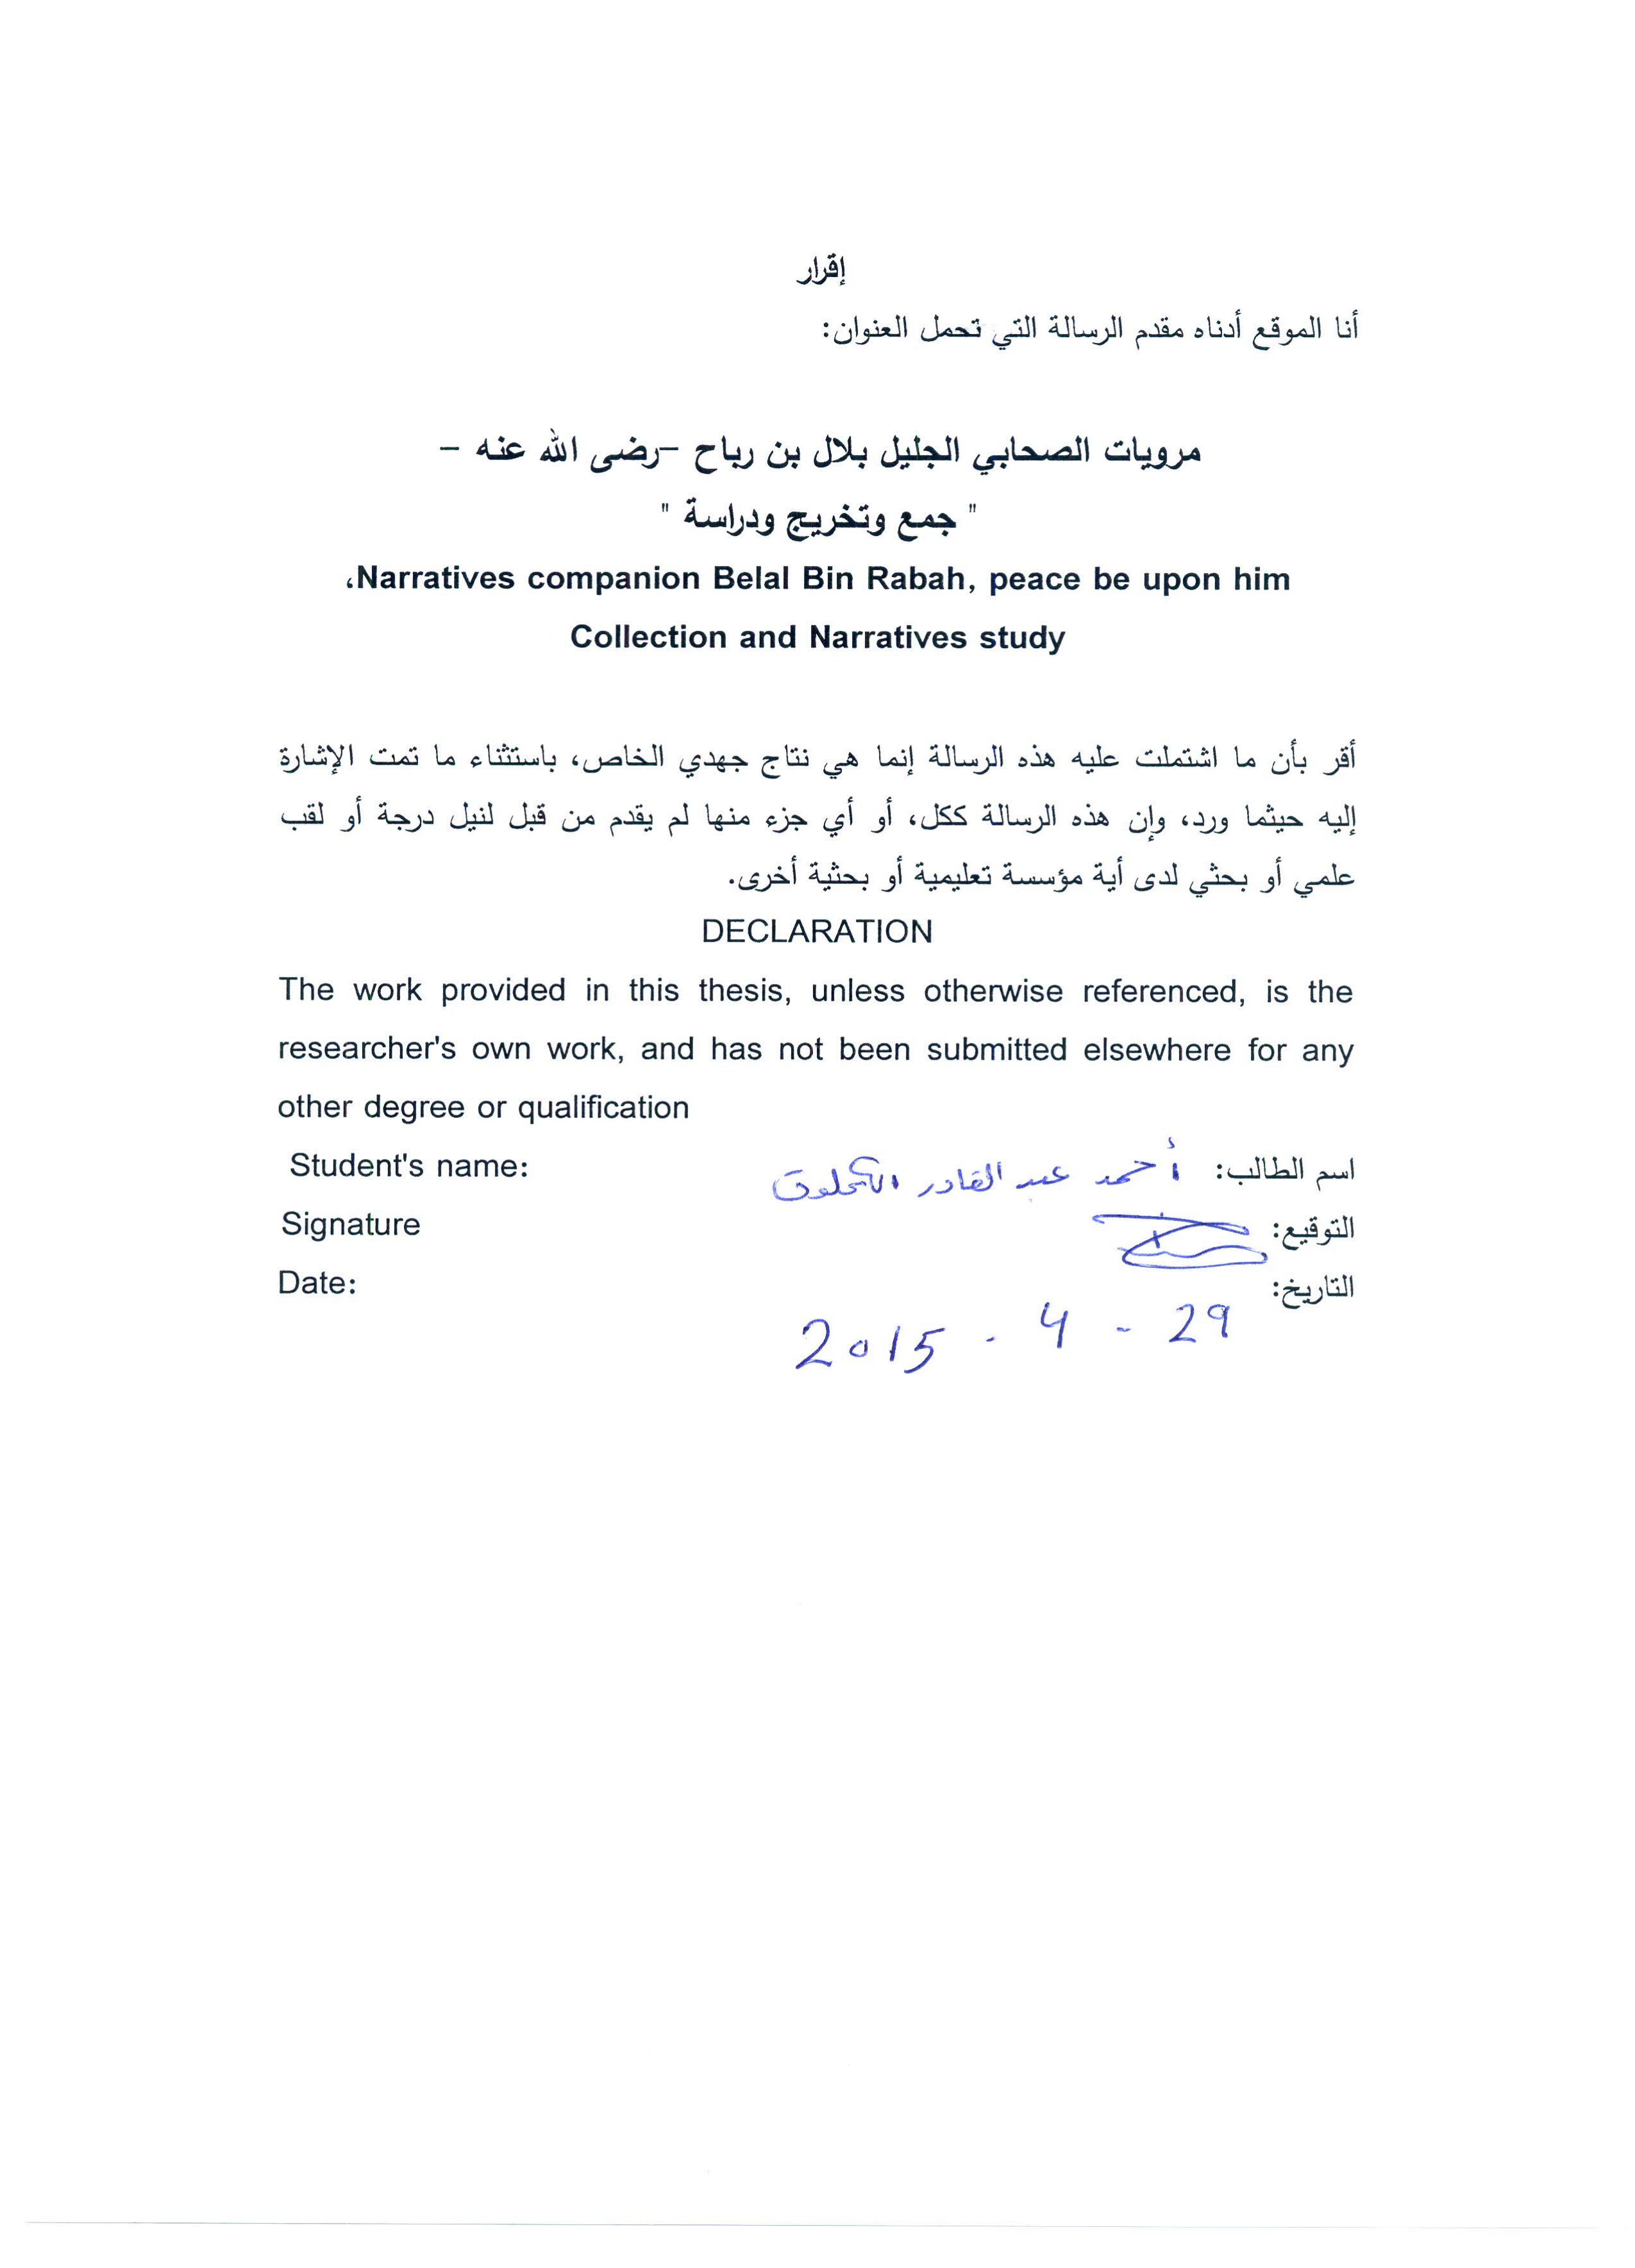 إقرار
أنا الموقع أدناه مقدم الرسالة التي تحمل العنوان:
مرويات الصحابي الجليل بلال بن رباح –رضى الله عنه –
" جمع وتخريج ودراسة "
Narratives companion Belal Bin Rabah, peace be upon him،
Collection and Narratives study
أقر بأن ما اشتملت عليه هذه الرسالة إنما هي نتاج جهدي الخاص، باستثناء ما تمت الإشارة
إليه حيثما ورد، وإن هذه الرسالة ككل، أو أي جزء منها لم يقدم من قبل لنيل درجة أو لقب
علمي أو بحثي لدى أية مؤسسة تعليمية أو بحثية أخرى.
DECLARATION
The work provided in this thesis, unless otherwise referenced, is the
researcher's own work, and has not been submitted elsewhere for any
other degree or qualification
Student's name: اسم الطالب: أحمد عبد القادر
Signature التوقيع:
Date: التاريخ:
29 - 4 - 2015